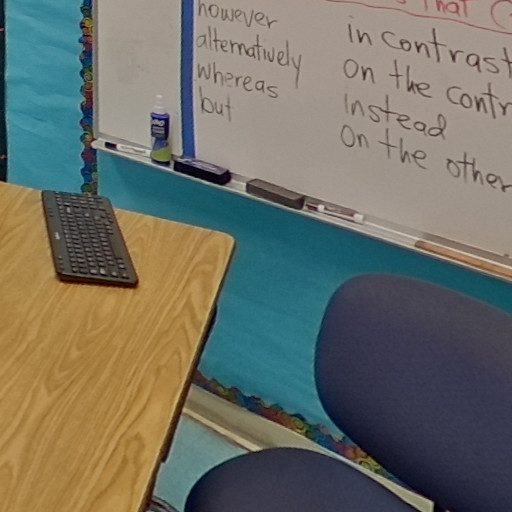 that C
however
alternatively
whereas
but
in contrast
on the contr
instead
on the other